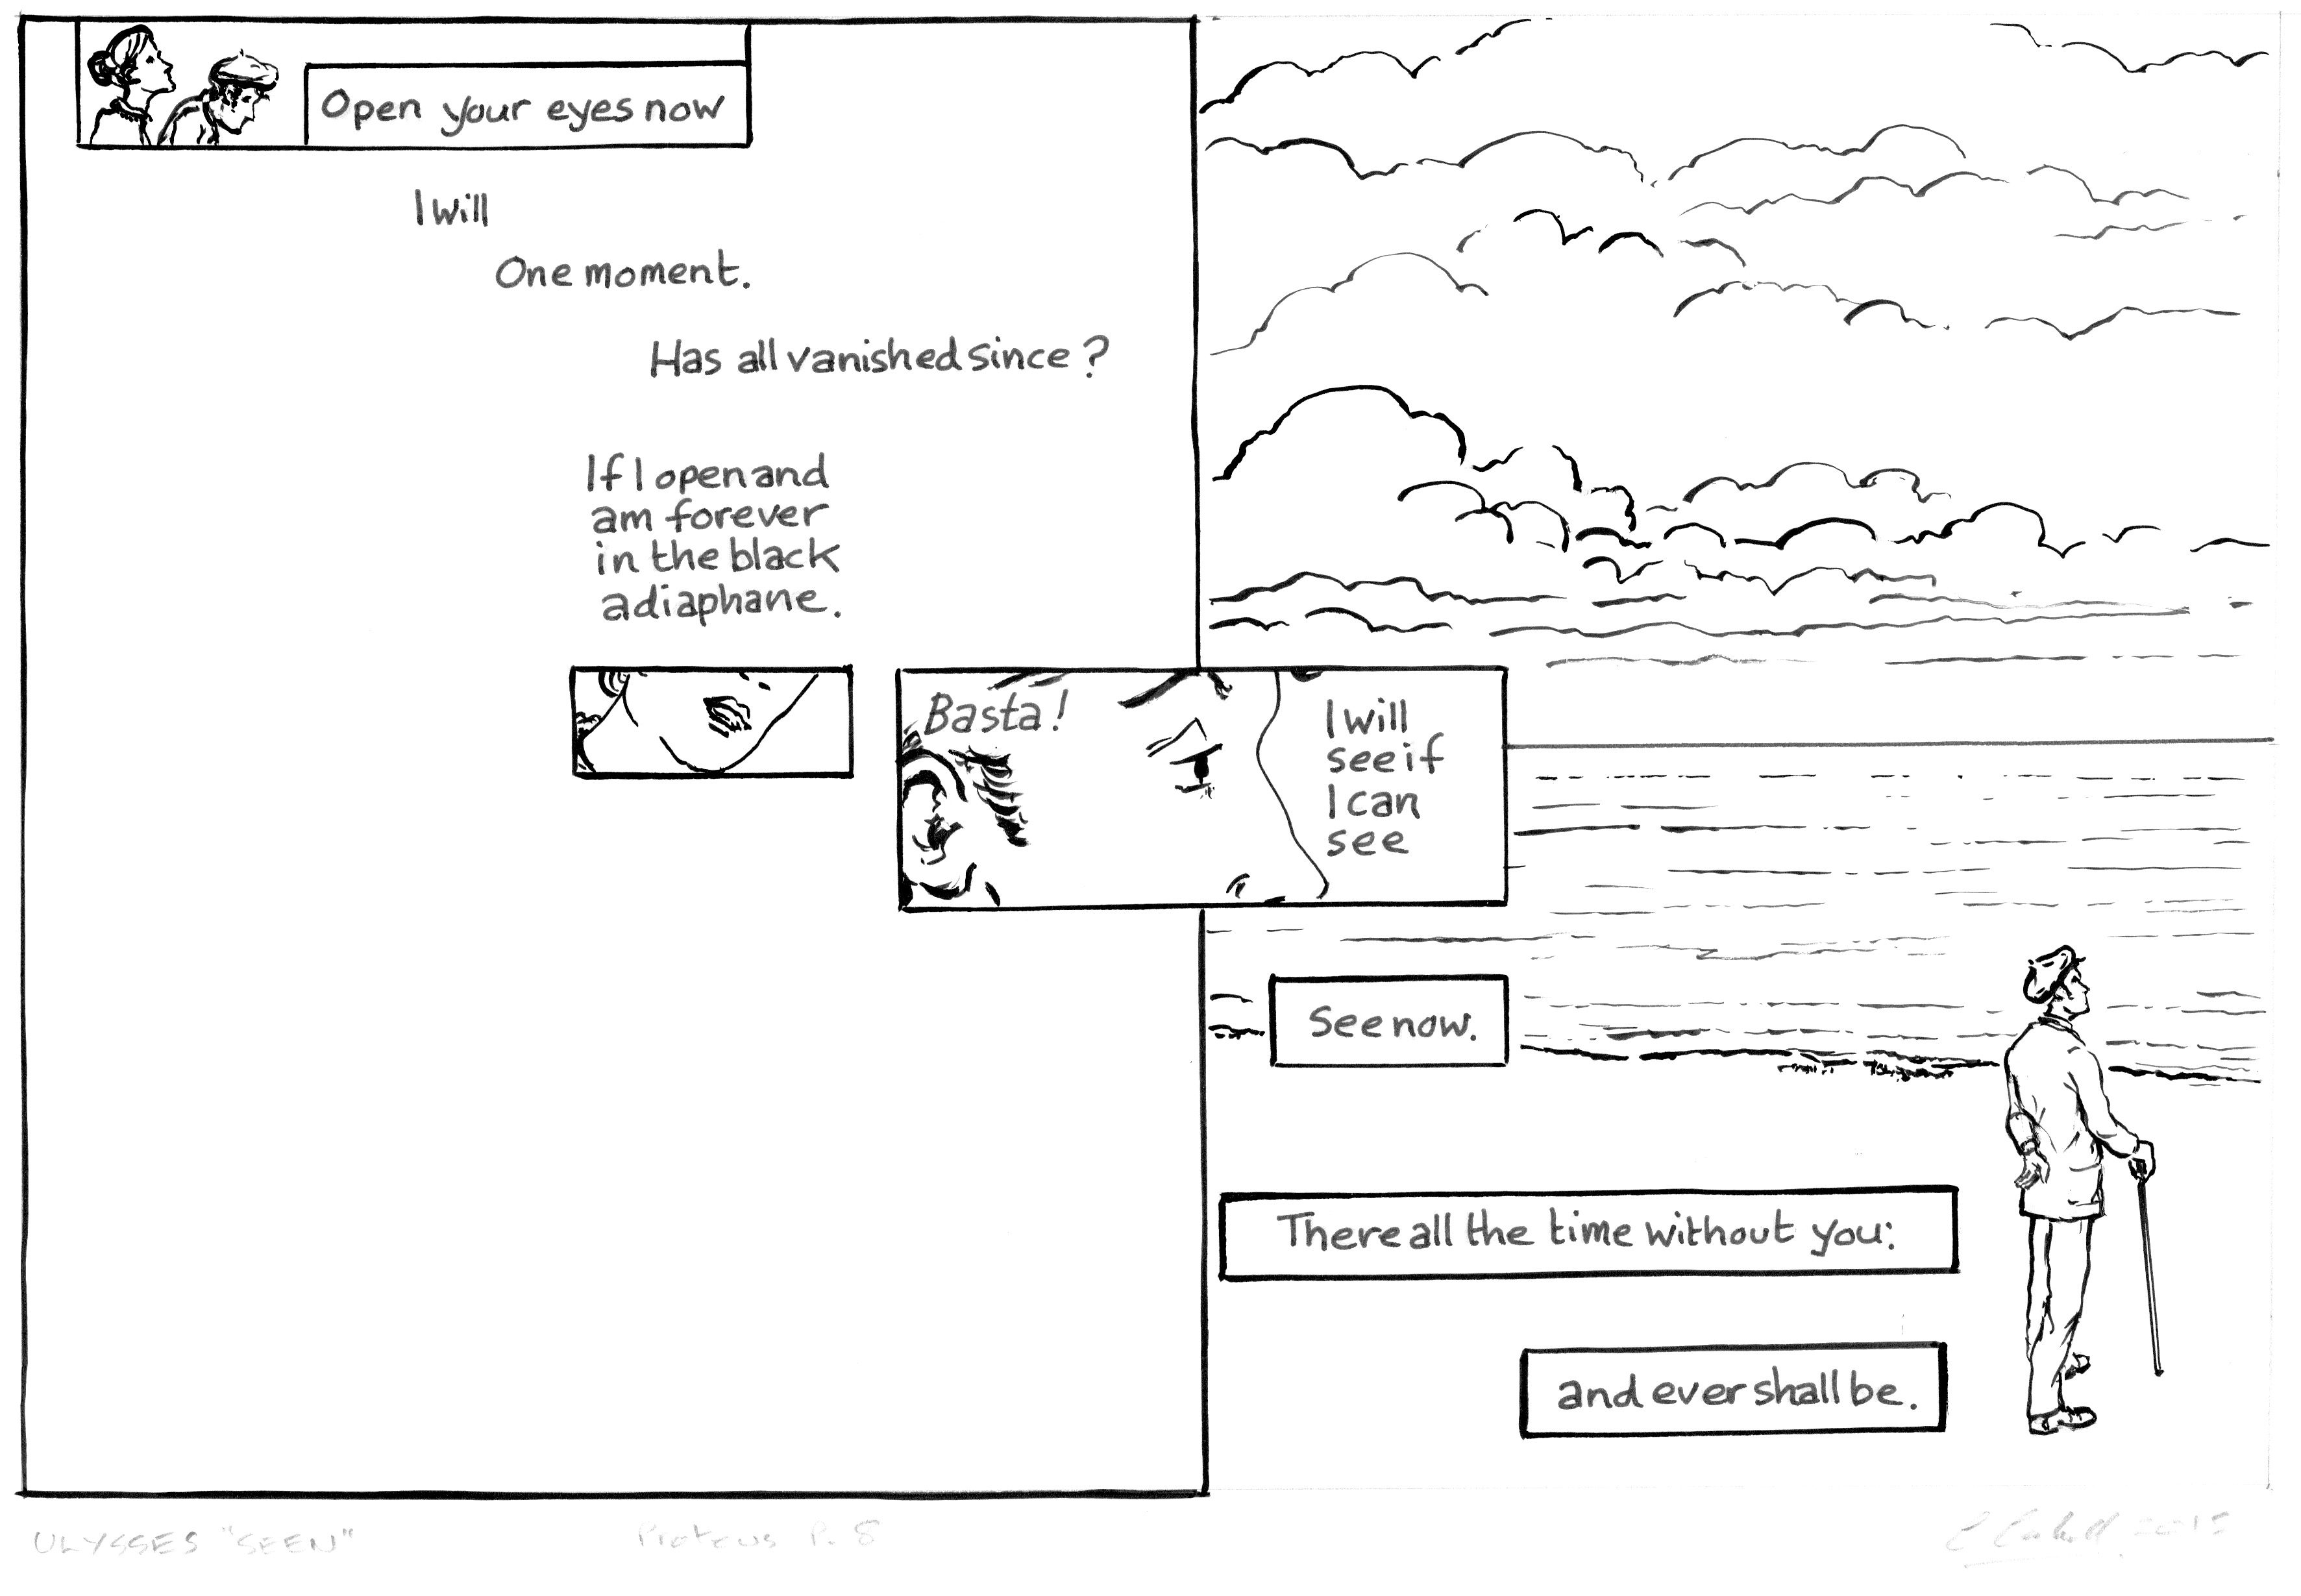 Open your eyes now
I will
One moment.
Has all vanished since?
If I open and
am forever
in the black
adiaphane.
Basta!
I will
see if
I can
see
See now.
There all the time without you:
and ever shall be.
ULYSSES "SEEN"
Proteus P. 8